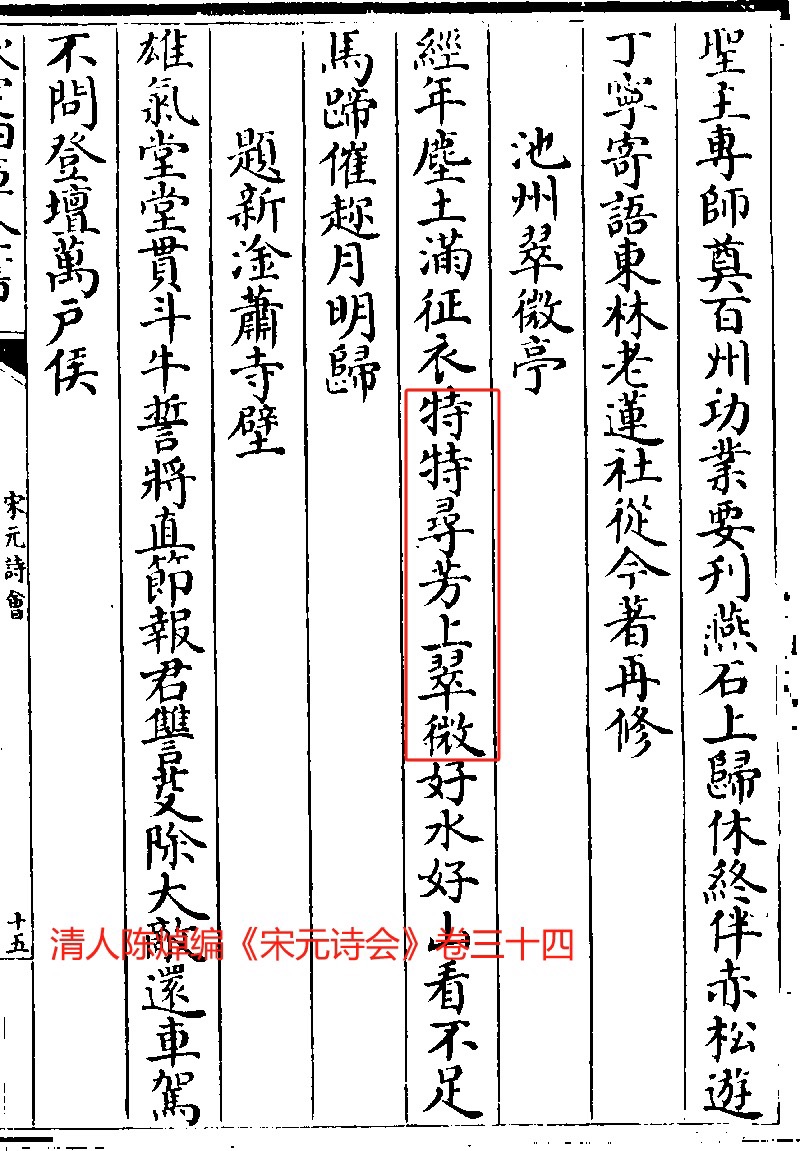 聖主專師奠百州功業要刊燕石上歸休終伴赤松遊
丁寧寄語東林老蓮社從今著再修
池州翠微亭
經年塵土滿征衣特特尋芳上翠微好水好山看不足
馬蹄催趂月明歸
題新淦蕭寺壁
雄氣堂堂貫斗牛誓將直節報君讐 除大敵還車駕
不問登壇萬戶侯
宋元詩會
十五
清人陈焯编《宋元诗会》卷三十四